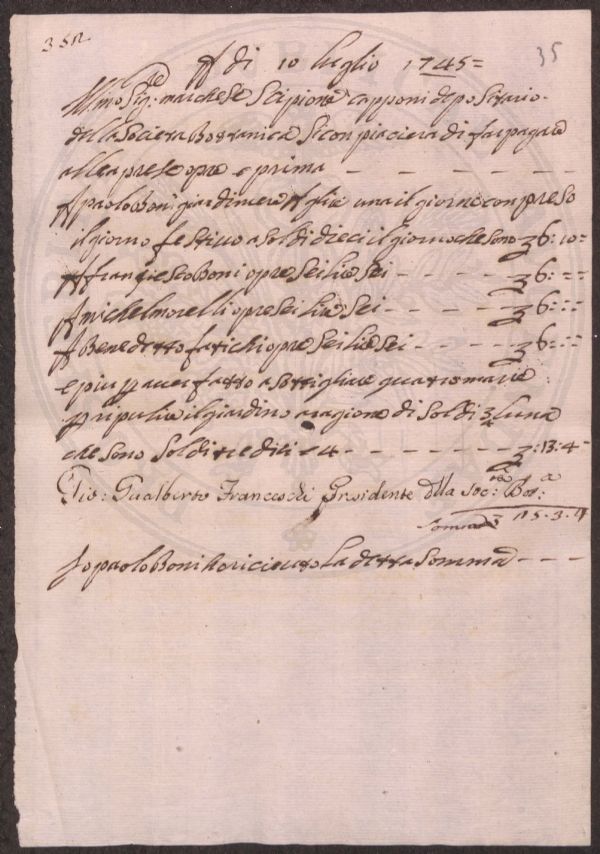 352
35
A di 10 luglio 1745=
Ill.mo Sig.re marchese Scipione capponi depositario
della Societa Bottanica Si conpiacera di far pagare
alle aprese opre e prima — — — — — —
A paolo Boni giardiniere
il giorno festivo a Soldi dieci il giorno che Sono 6: 10=
A franciesco Boni opre Sei lire Sei — — — — 6: ==
A michel morelli opre Sei lire Sei — — — — 6: ==
A Benedetto fatichi opre Sei lire Sei — — — — 6: ==
e piu p aver fatto asottigliare quatro marre
p ripulire il giardino a ragione di Soldi 3 luna
che Sono Soldi tredici e 4 — — — — — — : 13: 4
Gio: Gualberto Franceschi Presidente della Soc: Bot:a
Somma
Io paolo Boni ho riceuto La detta Somma — — —